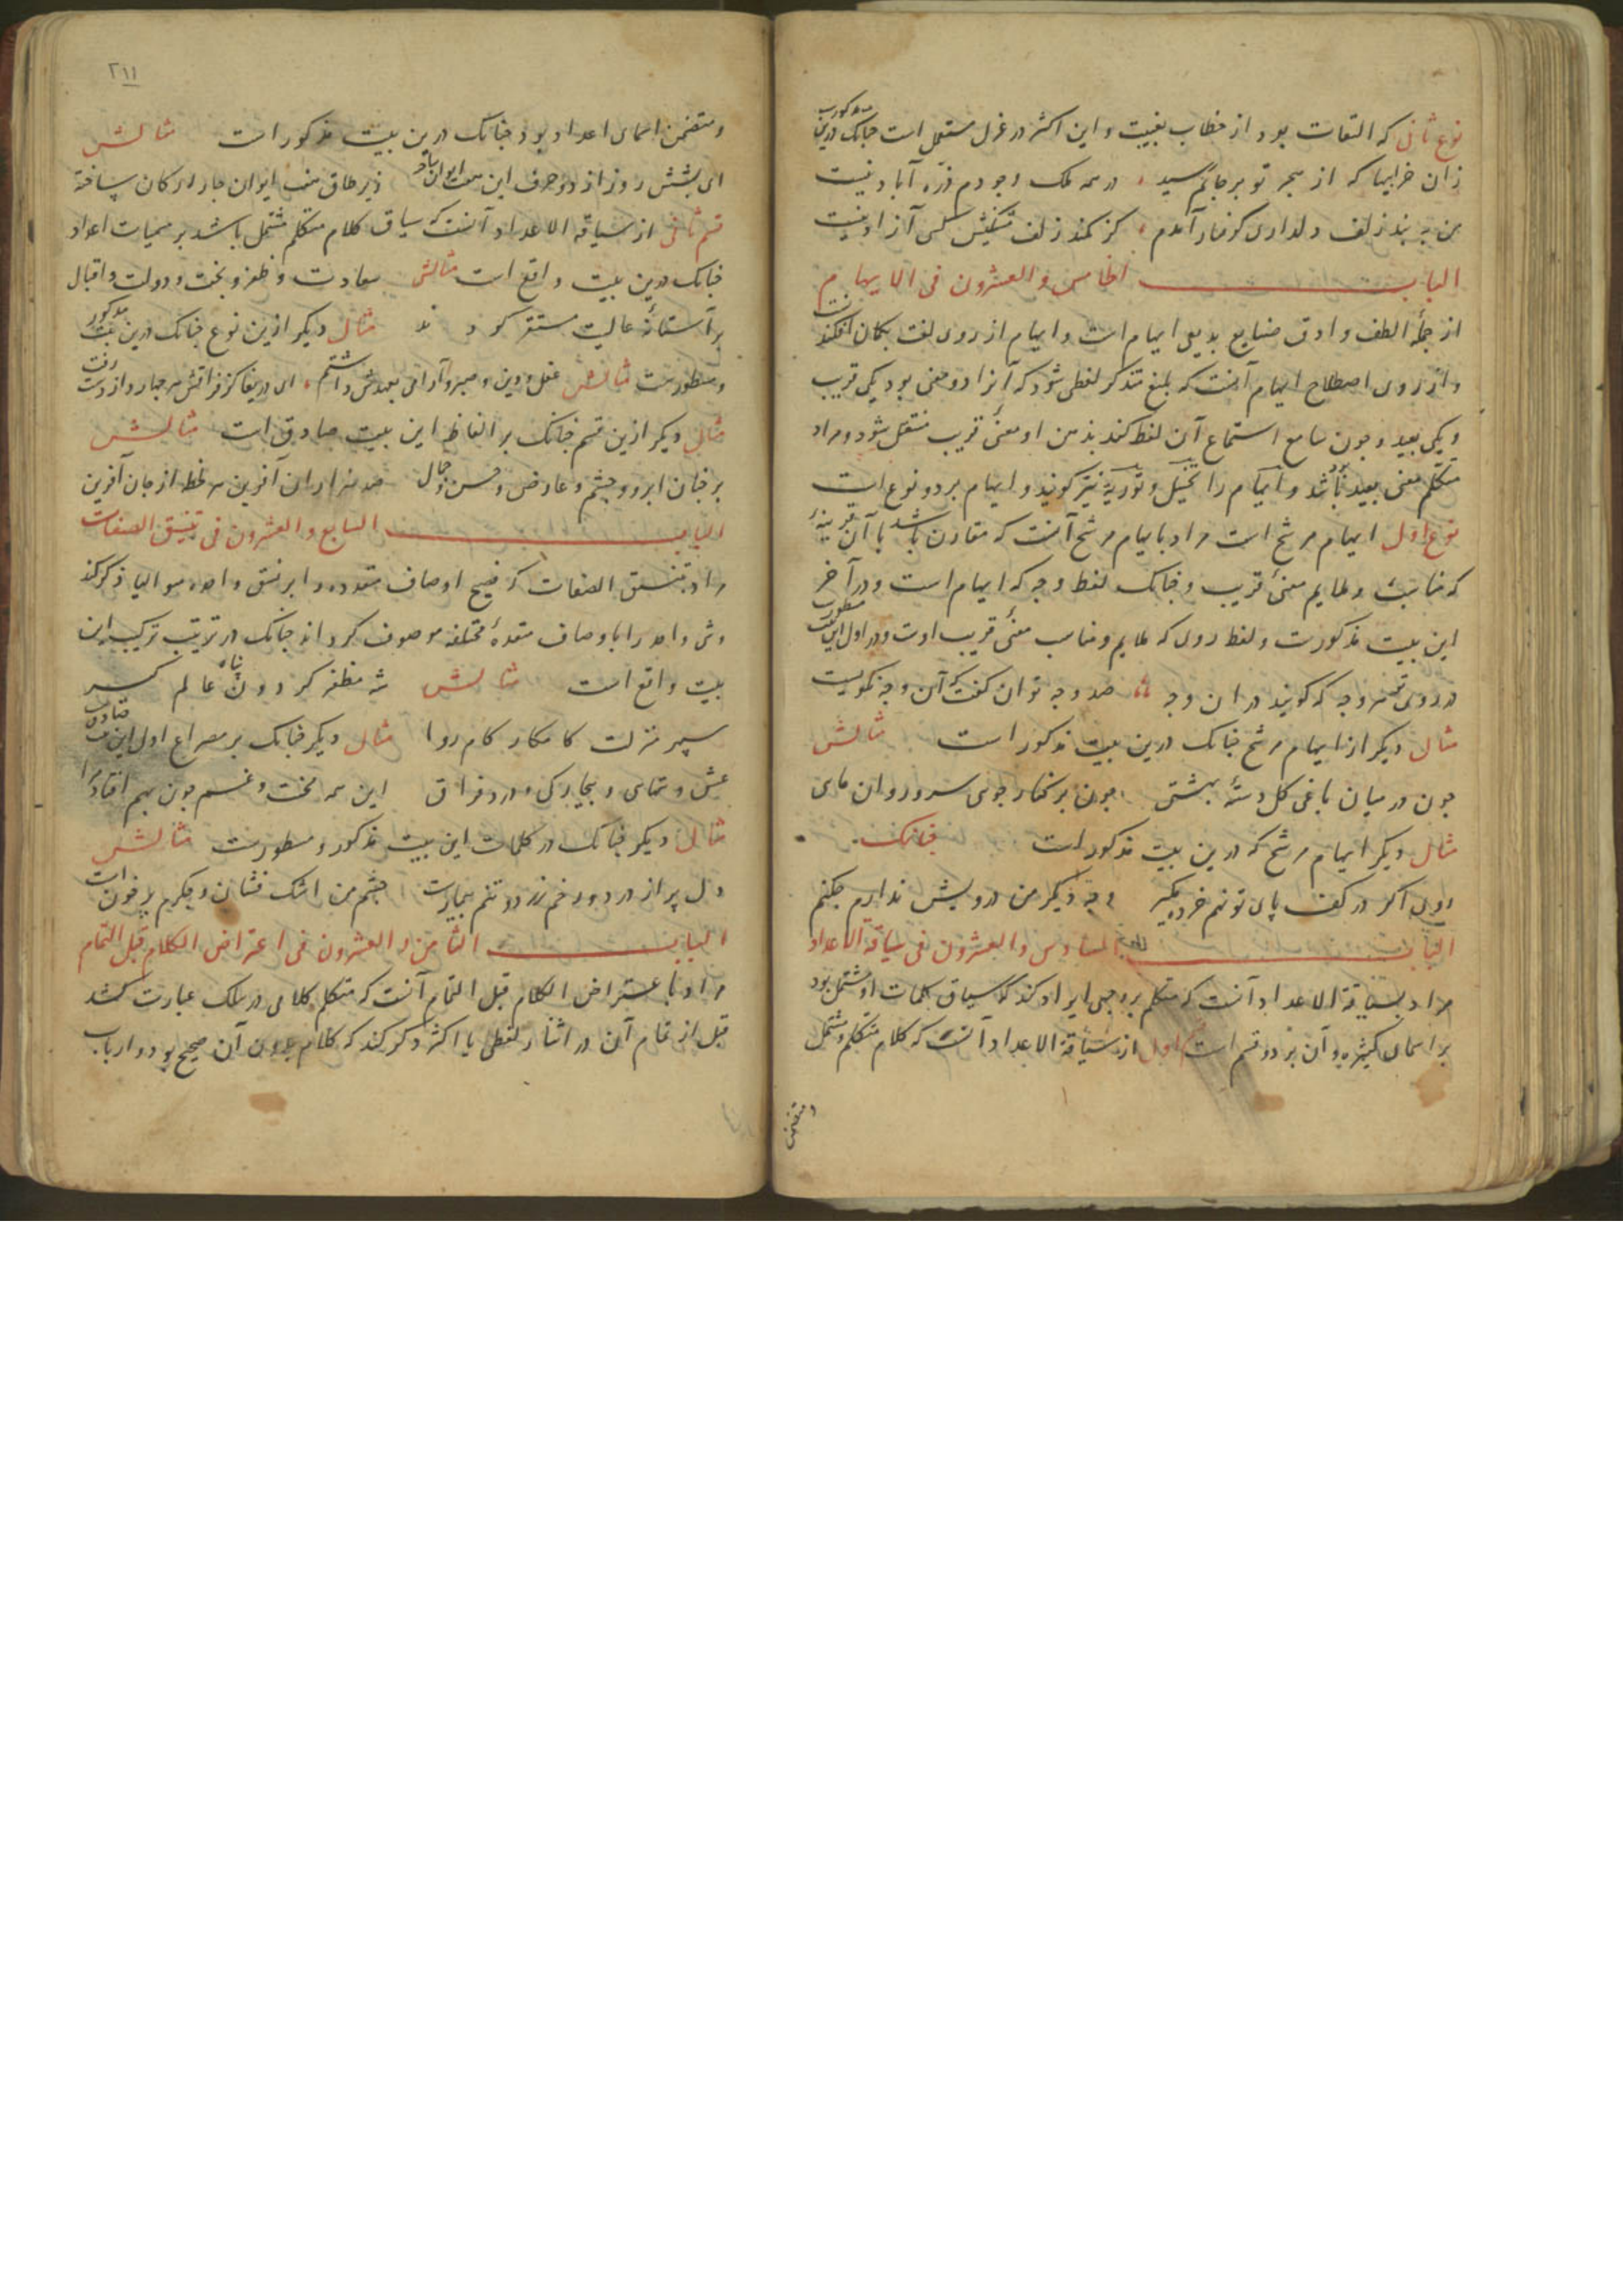 نوع ثانی که التفات بود از خطاب بغیبت و این اکثر در غزل مستعمل است چنانک درین مذکورست
زان خرابیها که از هجر تو بر جانم رسید در همه ملک وجودم ذره آباد نیست
من به بند زلف دلداری گرفتار آمدم کز کمند زلف مشکینش کسی آزاد نیست
الباب الخامس والعشرون فی الایهام
از جمله الطف و ادق صنایع بدیعی ایهام است و ایهام از روی لغت بکمان افکندنست
و از روی اصطلاح ایهام آنست که بلیغ متذکر لفظی شود که آنرا دو معنی بود یکی قریب
و یکی بعید و چون سامع استماع آن لفظ کند ذهن او معنیٔ قریب منتقل شود و مراد
متکلم معنی بعید باشد و ایهام را تخییل و توریه نیز گویند و ایهام بر دو نوع است
نوع اول ایهام مرشح است مراد بایهام مرشح آنست که مقارن باشد با آن قرینهٔ
که مناسب و ملایم معنیٔ قریب و چنانک لفظ وجه که ایهام است و در آخر
این بیت مذکورست و لفظ روی که ملایم و مناسب معنیٔ قریب اوست و در اول این بیت مسطور
در روی تو هر وجه که گویند در ان وجه صد وجه توان گفت که آن وجه نکویست
مثال دیگر از ایهام مرشح چنانک درین بیت مذکور است مثالش
چون در میان باغی گل دستهٔ بهشتی چون بر کنار جوی سرو روان مایی
مثال دیگر ایهام مرشح که درین بیت مذکور است چنانک
روی اگر در کف پای تو نهم خرده مگیر وجه دیگر من درویش ندارم چکنم
الباب السادس والعشرون فی سیاقة الاعداد
مراد بسیاقة الاعداد آنست که متکلم بر وجهی ایراد کند که سیاق کلمات او مشتمل بود
بر اسمای کثیره و آن بر دو قسم است اول از سیاقة الاعداد آنست که کلام متکلم مشتمل
و متضمن
٢١١
و متضمن اسمای اعداد بود چنانک درین بیت مذکور است مثالش
ای بشش روز از دو حرف این هفت ایوان زیر طاق ایوان چار ارکان ساخته
قسم ثانی از سیاقة الاعداد آنست که سیاق کلام متکلم مشتمل باشد بر مسمیات اعداد
چنانک درین بیت واقع است مثالش سعادت و ظفر و بخت و دولت و اقبال
بر آستانهٔ عالیت مستقر کردند مثال دیگر ازین نوع چنانک درین بیت مذکور
و مسطورست مثالش عقل و دین و صبر و آرامی بعهدش داشتم ای دریغا کز فراقش هر چهار از دست رفت
مثال دیگر ازین قسم چنانک بر الفاظ این بیت صادق است مثالش
بر چنان ابرو و چشم و عارض و حسن و جمال صد هزاران آفرین هر لحظ از جان آفرین
الباب السابع والعشرون فی تنسیق الصفات
مراد بتنسیق الصفات که فصیح اوصاف متعدده را بر نسق واحد متوالیا ذکر کند
و شئ واحد را باوصاف متعددهٔ مختلفه موصوف کرداند چنانک در ترتیب ترکیب این
بیت واقع است مثالش شه مظفر گردون پناه عالم گیر
سپهر منزلت کامکار کام روا مثال دیگر چنانک بر مصراع اول این بیت صادق
عشق و تنهایی و بیچارگی و درد فراق این همه محنت و غم چون بهم افتاد مرا
مثال دیگر چنانک در کلمات این بیت مذکور و مسطورست مثالش
دل پر از درد و رخم زرد و تنم بیمارست چشم من اشک فشان و جگرم پر خون است
الباب الثامن والعشرون فی اعتراض الکلام قبل التمام
مراد باعتراض الکلام قبل التمام آنست که متکلم کلامی در سلک عبارت کشد
قبل از تمام آن در اثناء لفظی یا اکثر ذکر کند که کلام بدون آن صحیح بود و ارباب